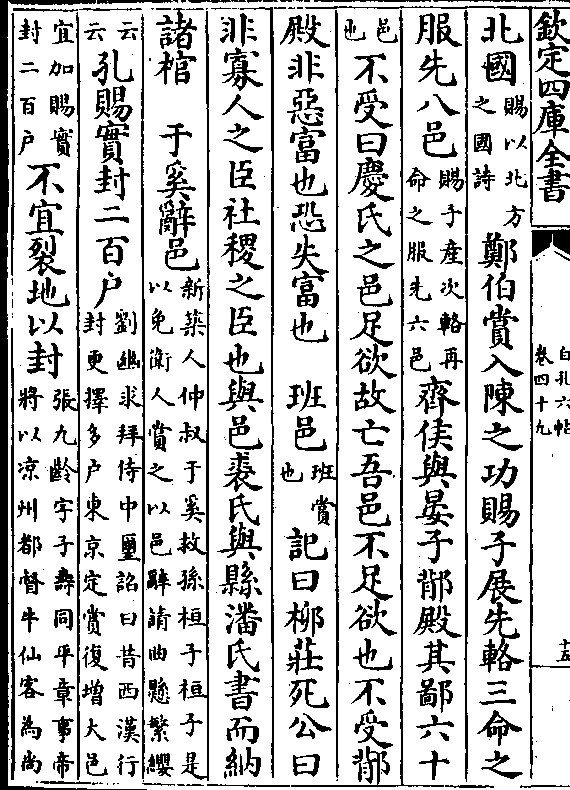 欽定四庫全書
白孔六帖
卷四十九
十五
北國賜以北方之國詩 鄭伯賞入陳之功賜子展先輅三命之
服先八邑賜子產次輅再命之服先六邑齊侯與晏子鄁殿其鄙六十
邑也不受曰慶氏之邑足欲故亡吾邑不足欲也不受鄁
殿非惡富也恐失富也 班邑班賞也 記曰柳莊死公曰
非寡人之臣社稷之臣也與邑裘氏與縣潘氏書而納
諸棺 于奚辭邑新築人仲叔于奚救孫桓子桓子是以免衛人賞之以邑辭請曲懸繁纓
云云孔賜實封二百户劉幽求拜侍中璽詔曰昔西漢行封更擇多户東京定賞復增大邑
宜加賜實封二百户不宜裂地以封張九齡字子壽同平章事帝將以凉州都督牛仙客為尚